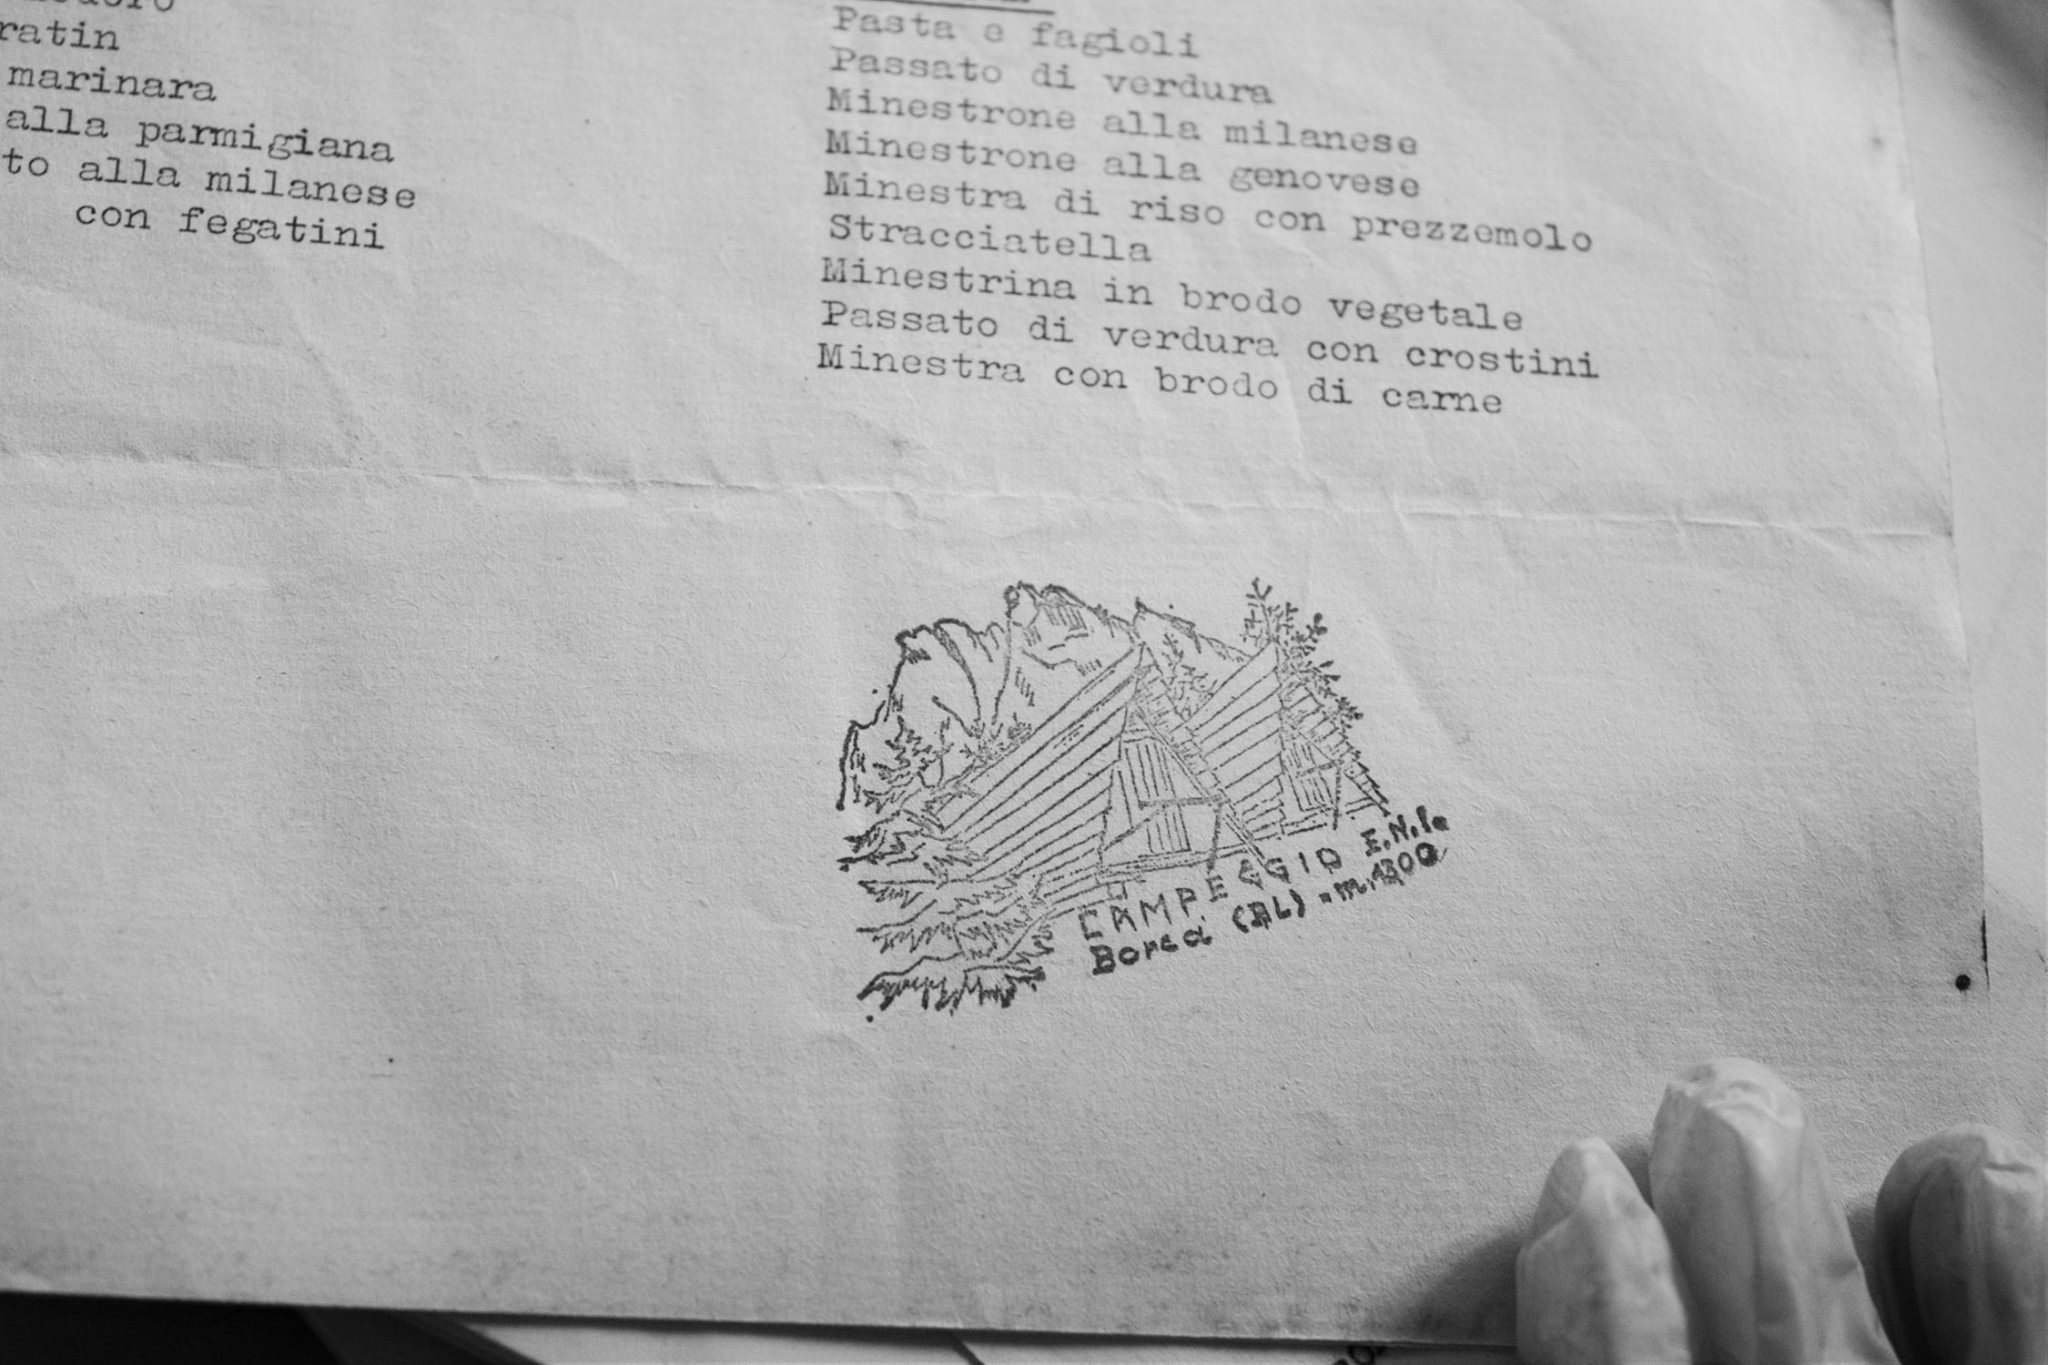 ratin
marinara
alla parmigiana
to alla milanese
con fegatini
Pasta e fagioli
Passato di verdura
Minestrone alla milanese
Minestrone alla genovese
Minestra di riso con prezzemolo
Stracciatella
Minestrina in brodo vegetale
Passato di verdura con crostini
Minestra con brodo di carne
CAMPEGGIO E.N.I.
Borca (BL) - m.1300